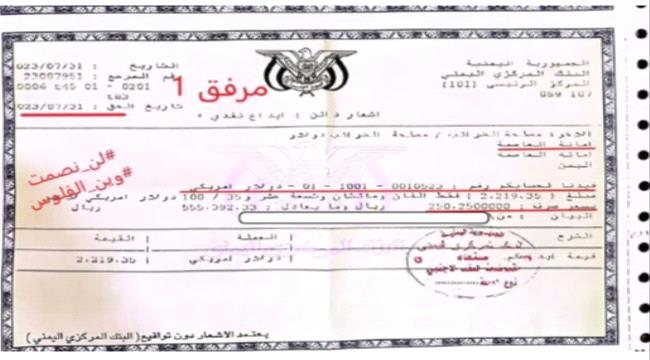 الجمهورية اليمنية
البنك المركزي اليمني
المركز الرئيسي (101)
059 107
التاريخ : 023/07/31
رقم المرجع : 23087951
0006 t45 01 - 0201
t83
تاريخ الحق : 023/07/31
مرفق 1
اشعار دائن : ايداع نقدي *
الاخوة مصلحة الضرائب / مصلحة الضرائب دولار
امانة العاصمة
امانه العاصمة
اليمن
#لن_نصمت
#وين_الفلوس
قيدنا لحسابكم رقم : 0010523 - 1001 - 01 - دولار امريكي
مبلغ (2,219.35) فقط الفان ومائتان وتسعة عشر و35 / 100 دولار امريكي
بسعر صرف : 250.2500000 ريال وما يعادل : 555,392.33 ريال
البيان : من
الشرح العملة القيمة
قيمة ايداعكم دولار امريكي 2,219.35
البنك المركزي اليمني
صنعاء
يعتمد الأشعار دون تواقيع (البنك المركزي اليمني)